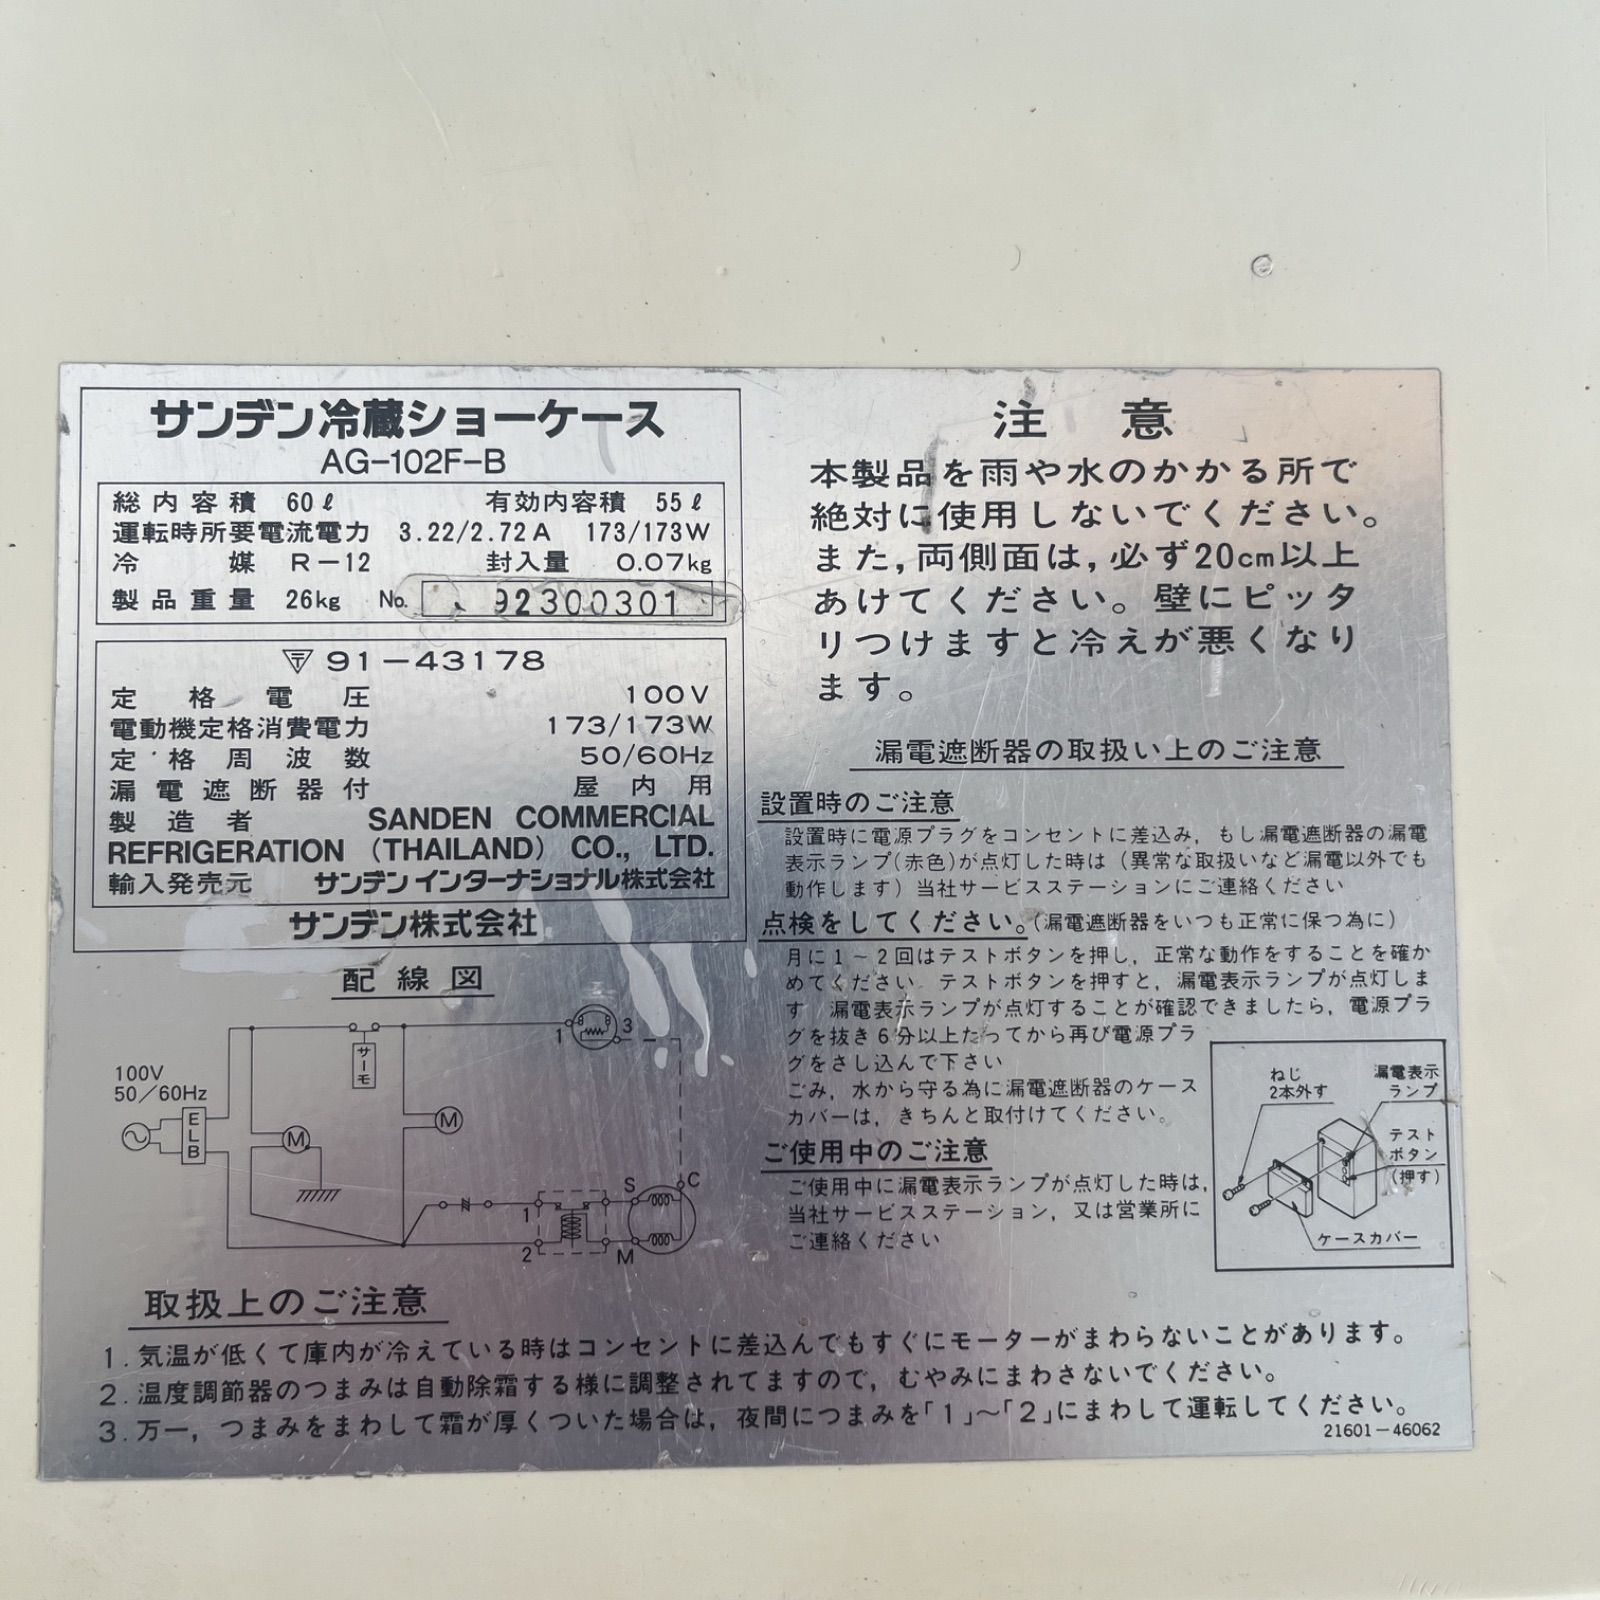 サンデン冷蔵ショーケース
AG-102F-B
総内容積 60ℓ 有効内容積 55ℓ
運転時所要電流電力 3.22/2.72A 173/173W
冷媒 R-12 封入量 0.07kg
製品重量 26kg No. 92300301
〒 91-43178
定格電圧 100V
電動機定格消費電力 173/173W
定格周波数 50/60Hz
漏電遮断器付 屋内用
製造者 SANDEN COMMERCIAL
REFRIGERATION (THAILAND) CO., LTD.
輸入発売元 サンデンインターナショナル株式会社
サンデン株式会社
配線図
100V
50/60Hz
ELB
サーモ
M
M
1
3
1
2
S
C
M
注意
本製品を雨や水のかかる所で
絶対に使用しないでください。
また,両側面は,必ず20cm以上
あけてください。壁にピッタ
リつけますと冷えが悪くなり
ます。
漏電遮断器の取扱い上のご注意
設置時のご注意
設置時に電源プラグをコンセントに差込み,もし漏電遮断器の漏電
表示ランプ(赤色)が点灯した時は(異常な取扱いなど漏電以外でも
動作します)当社サービスステーションにご連絡ください
点検をしてください。(漏電遮断器をいつも正常に保つ為に)
月に1～2回はテストボタンを押し,正常な動作をすることを確か
めてください テストボタンを押すと,漏電表示ランプが点灯しま
す 漏電表示ランプが点灯することが確認できましたら,電源プラ
グを抜き6分以上たってから再び電源プラ
グをさし込んで下さい
ごみ,水から守る為に漏電遮断器のケース
カバーは,きちんと取付けてください。
ご使用中のご注意
ご使用中に漏電表示ランプが点灯した時は,
当社サービスステーション,又は営業所に
ご連絡ください
ねじ
2本外す
漏電表示
ランプ
テスト
ボタン
(押す)
ケースカバー
取扱上のご注意
1.気温が低くて庫内が冷えている時はコンセントに差込んでもすぐにモーターがまわらないことがあります。
2.温度調節器のつまみは自動除霜する様に調整されてますので,むやみにまわさないでください。
3.万一,つまみをまわして霜が厚くついた場合は,夜間につまみを「1」～「2」にまわして運転してください。
21601-46062